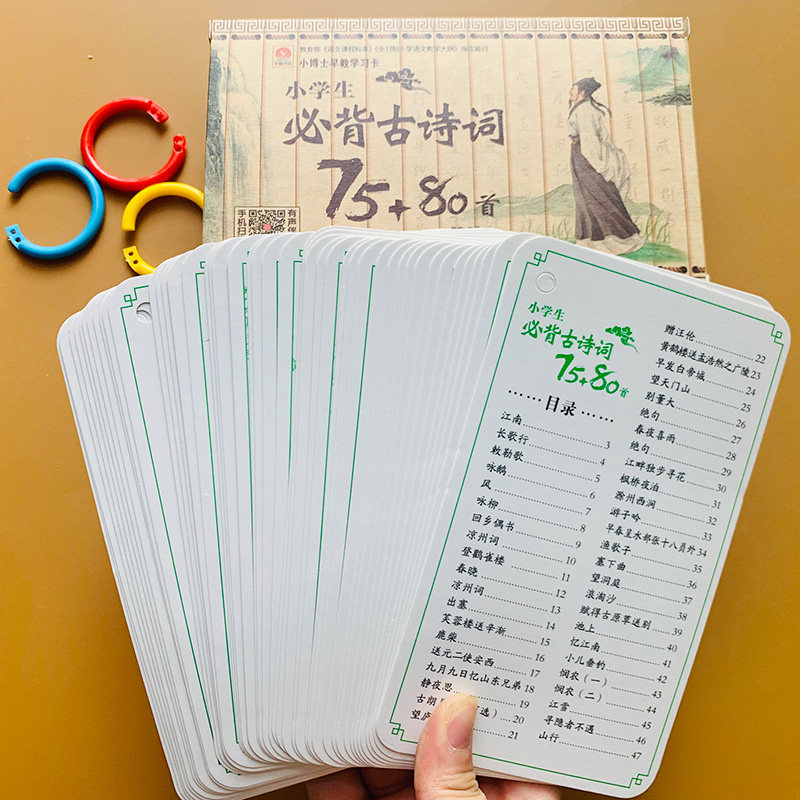 教育部《语文课程标准》《全日制小学语文教学大纲》指定篇目
小博士早教学习卡
小学生
必背古诗词
75+80首
手机扫
有声伴
小学生
必背古诗词
75+80首
……目录……
江南 3
长歌行 4
敕勒歌 5
咏鹅 6
风 7
咏柳 8
回乡偶书 9
凉州词 10
登鹳雀楼 11
春晓 12
凉州词 13
出塞 14
芙蓉楼送辛渐 15
鹿柴 16
送元二使安西 17
九月九日忆山东兄弟 18
静夜思 19
古朗 选） 20
望庐 21
赠汪伦 22
黄鹤楼送孟浩然之广陵 23
早发白帝城 24
望天门山 25
别董大 26
绝句 27
春夜喜雨 28
绝句 29
江畔独步寻花 30
枫桥夜泊 31
滁州西涧 32
游子吟 33
早春呈水部张十八员外 34
渔歌子 35
塞下曲 36
望洞庭 37
浪淘沙 38
赋得古原草送别 39
池上 40
忆江南 41
小儿垂钓 42
悯农（一） 43
悯农（二） 44
江雪 45
寻隐者不遇 46
山行 47